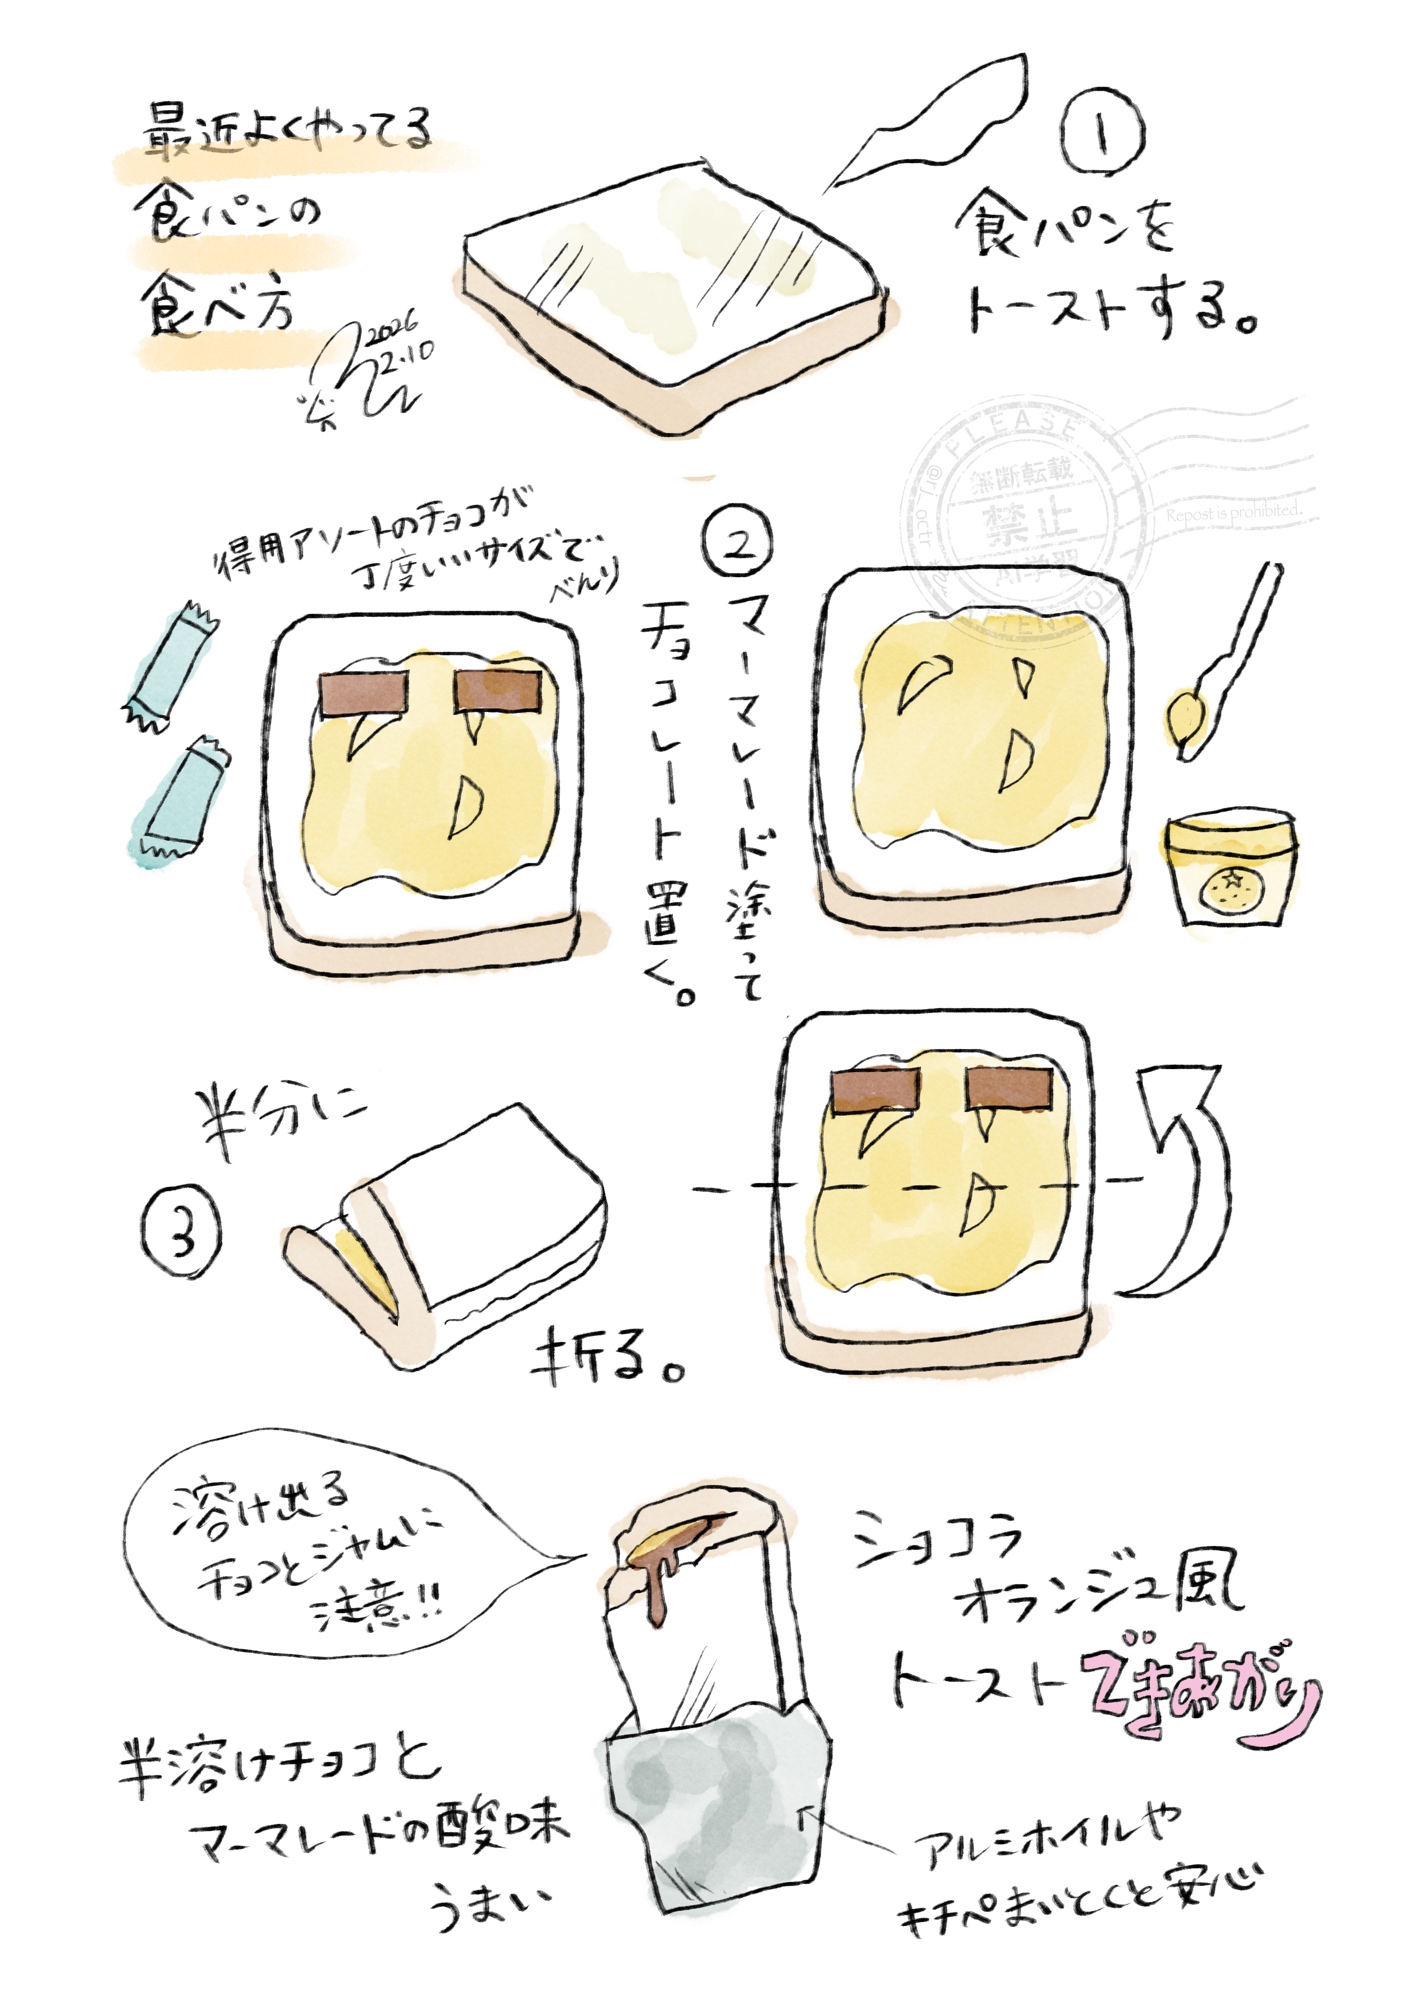 最近よくやってる
食パンの
食べ方
2026
2.10
①
食パンを
トーストする。
PLEASE
無断転載
禁止
AI学習
Repost is prohibited.
②
マーマレード塗って
チョコレート置く。
得用アソートのチョコが
丁度いいサイズで
べんり
③
半分に
折る。
溶け出る
チョコとジャムに
注意!!
ショコラ
オランジュ風
トーストできあがり
半溶けチョコと
マーマレードの酸味
うまい
アルミホイルや
キチペまいとくと安心